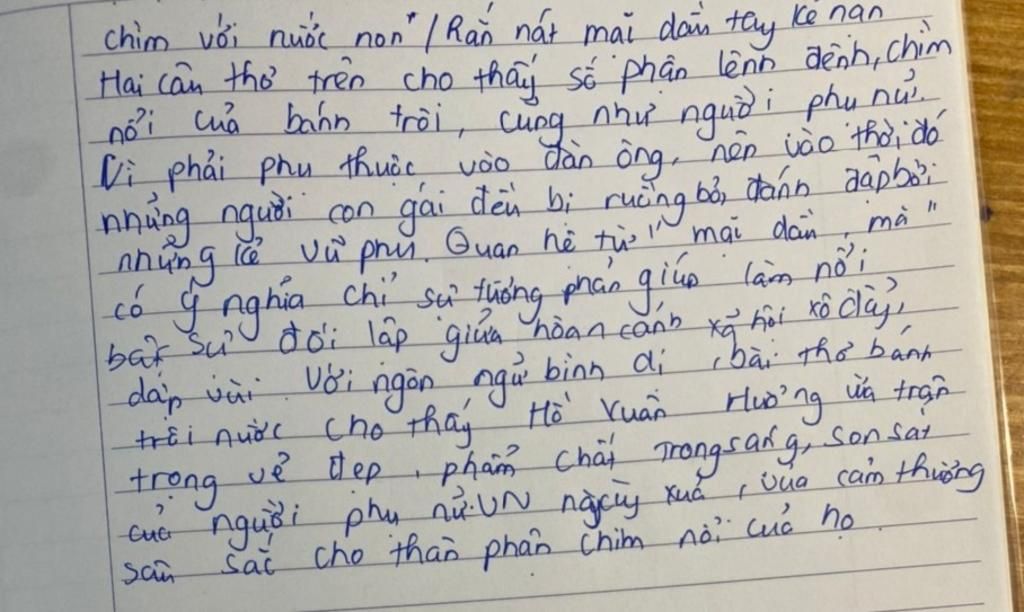 chìm với nước non" / Rắn nát mãi dầu tay kẻ nặn
Hai câu thơ trên cho thấy số phận lênh đênh, chìm
nổi của bánh trôi, cũng như người phụ nữ.
Vì phải phụ thuộc vào đàn ông, nên vào thời đó
những người con gái đều bị ruồng bỏ, đánh đập bởi
những kẻ vũ phu. Quan hệ từ " mặc dầu, mà "
có ý nghĩa chỉ sự tương phản giúp làm nổi
bật sự đối lập giữa hoàn cảnh xã hội xô đẩy,
dập vùi. Với ngôn ngữ bình dị, bài thơ bánh
trôi nước cho thấy Hồ Xuân Hương vừa trân
trọng vẻ đẹp, phẩm chất trong sáng, son sắt
của người phụ nữ VN ngày xưa, vừa cảm thương
sâu sắc cho thân phận chìm nổi của họ.